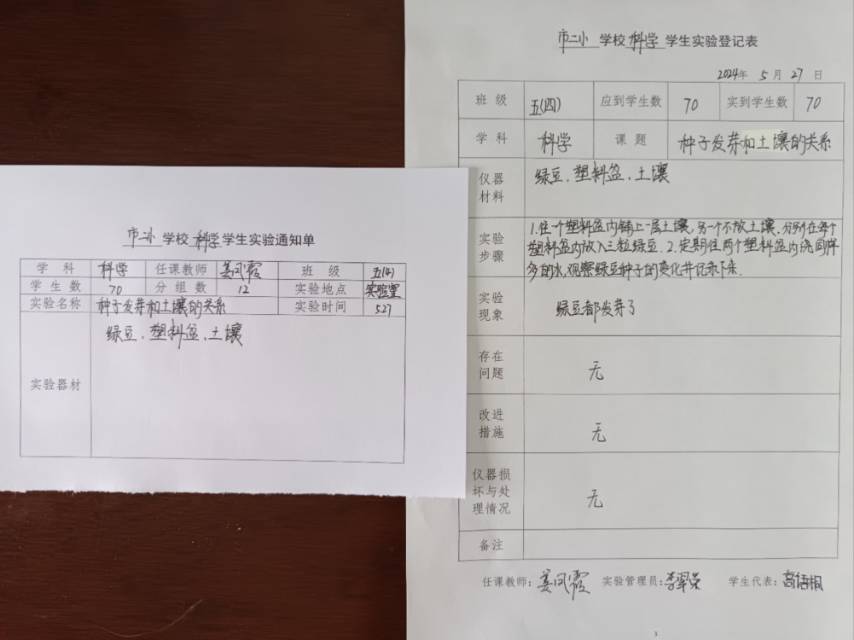 市二小 学校 科学 学生实验通知单
学科 科学 任课教师 姜凤霞 班级 五(4)
学生数 70 分组数 12 实验地点 实验室
实验名称 种子发芽和土壤的关系 实验时间 5.27
实验器材 绿豆、塑料盆、土壤
市二小 学校 科学 学生实验登记表
2024年 5月 27日
班级 五(四) 应到学生数 70 实到学生数 70
学科 科学 课题 种子发芽和土壤的关系
仪器
材料
绿豆、塑料盆、土壤
实验
步骤
1.在一个塑料盆内铺上一层土壤,另一个不放土壤,分别在每个
塑料盆内放入三粒绿豆.2.定期往两个塑料盆内浇同样
多的水,观察绿豆种子的变化并记录下来.
实验
现象
绿豆都发芽了
存在
问题
无
改进
措施
无
仪器损
坏与处
理情况
无
备注
任课教师: 姜凤霞 实验管理员: 李翠荣 学生代表:
1